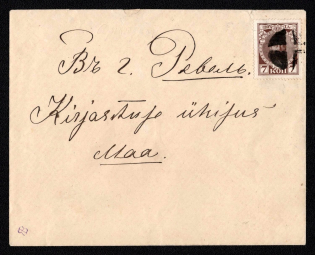 Въ г. Ревель.
Kirjastuse ühisus
Maa.
7 КОП 7